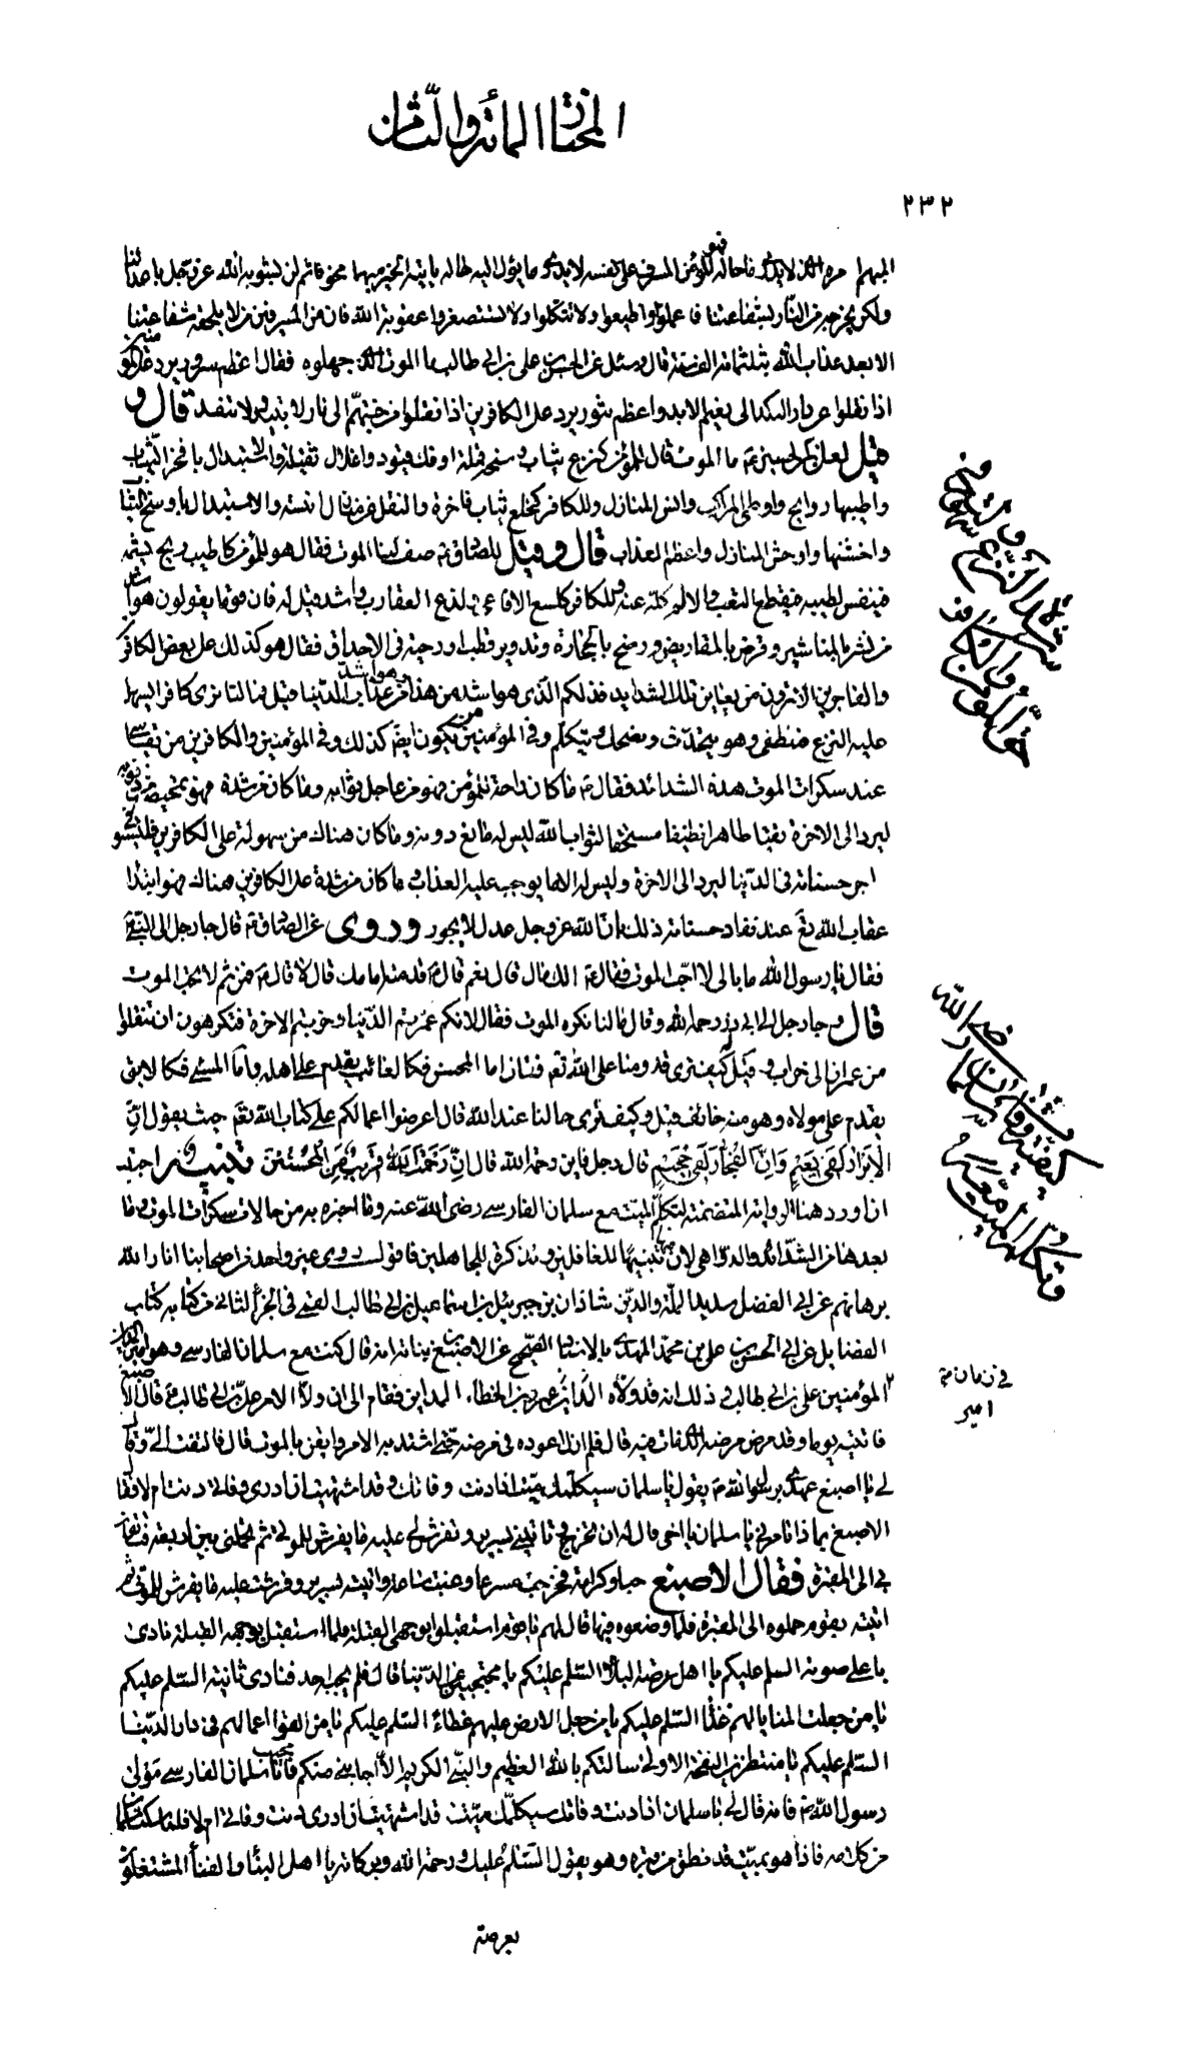 المختار المائة والثامن
٢٣٢
المبهم امره الذي لا يدري ما حاله فهو المؤمن المسرف على نفسه لا يدري ما يؤول اليه حاله يأتيه الخبر مبهما مخوفا ثم لن يسويه الله عز وجل باعدائنا
ولكن يخرجه من النار بشفاعتنا فاعملوا واطيعوا ولا تتكلوا ولا تستصغروا عقوبة الله فان من المسرفين من لا يلحقه شفاعتنا
الا بعد عذاب الله بثلثمائة الف سنة قال وسئل عن الحسن بن علي بن ابي طالب ما الموت الذي جهلوه فقال اعظم سرور يرد على المؤمنين
اذا نقلوا عن دار النكد الى نعيم الابد واعظم ثبور يرد على الكافرين اذا نقلوا من جنتهم الى نار لا تبيد ولا تنفد قال و
قيل لعلي بن الحسين ع ما الموت قال للمؤمن كنزع ثياب وسخة قملة او فك قيود واغلال ثقيلة والاستبدال بافخر الثياب
واطيبها روايح واوطئ المراكب وانس المنازل وللكافر كخلع ثياب فاخرة والنقل من منازل انيسة والاستبدال باوسخ الثياب
واخشنها واوحش المنازل واعظم العذاب قال وقيل للصادق ع صف لنا الموت فقال هو للمؤمن كاطيب ريح يشمه
فينعس لطيبه فيقطع التعب والالم كله عنه وللكافر كلسع الافاعي ولذع العقارب واشد قيل له فان قوما يقولون هو اشد
من نشر بالمناشير وقرض بالمقاريض ورضخ بالحجارة وتدوير قطب ارحية في الاحداق فقال هو كذلك على بعض الكافرين
والفاجرين الا ترون من يعاين تلك الشدايد فذلكم الذي هو اشد من هذا وهو اشد من عذاب الدنيا قيل فما لنا نرى كافرا يسهل
عليه النزع فينطفي وهو يتحدث ويضحك ويتكلم وفي المؤمنين من يكون ايضا كذلك وفي المؤمنين والكافرين من يقاسي
عند سكرات الموت هذه الشدائد فقال ع ما كان من راحة للمؤمن فهو من عاجل ثوابه وما كان من شدة فهو تمحيصه من ذنوبه
ليرد الى الاخرة نقيا طاهرا نظيفا مستحقا لثواب الله ليس له مانع دونه وما كان هناك من سهولة على الكافرين فليستوفي
اجر حسناته في الدنيا ليرد الى الاخرة وليس له الا ما يوجب عليه العذاب وما كان من شدة على الكافرين هناك فهو ابتداء
عقاب الله تع عند نفاد حسناته ذلك بان الله عز وجل عدل لا يجور وروى عن الصادق ع قال جاء رجل الى النبي ص
فقال يا رسول الله ما بالي لا احب الموت فقال ص الك مال قال نعم قال ص قدمته امامك قال لا قال ص فمن ثم لا تحب الموت
قال و جاء رجل الى ابي ذر رحمه الله وقال مالنا نكره الموت فقال لانكم عمرتم الدنيا وخربتم الاخرة فتكرهون ان تنقلوا
من عمران الى خراب و قيل له كيف ترى قدومنا على الله تع فقال اما المحسن فكالغائب يقدم على اهله واما المسئ فكالابق
يقدم على مولاه وهو منه خائف قيل وكيف ترى حالنا عند الله قال اعرضوا اعمالكم على كتاب الله تع حيث يقول ان
الابرار لفي نعيم وان الفجار لفي جحيم قال رجل فاين رحمة الله قال ان رحمة الله قريب من المحسنين تنبيه واجب
ان اورد هنا الرواية المتضمنة لتكلم الميت مع سلمان الفارسي رضي الله عنه وما اخبره به من حالات سكرات الموت وما
بعدها من الشدائد والدواهي لان فيها تنبيها للغافلين وتذكرة للجاهلين فاقول روى غير واحد من اصحابنا انار الله
برهانهم عن ابي الفضل سديد الملة والدين شاذان بن جبرئيل بن اسماعيل بن ابي طالب القمي في الجزء الثاني من كتابه كتاب
الفضايل عن ابي الحسن بن علي بن محمد المهدي بالاسناد الصحيح عن الاصبغ بن نباته انه قال كنت مع سلمان الفارسي وهو امير المداين
المؤمنين علي بن ابي طالب و ذلك انه قد ولاه المداين عمر بن الخطاب المداين فقام الى ان ولى الامر علي بن ابي طالب ع قال الاصبغ
فاتيته يوما وقد مرض مرضه الذي مات فيه قال فلم ازل اعوده في مرضه حتى اشتد به الامر وايقن بالموت قال فالتفت الي وقال
لي يا اصبغ عهدي برسول الله ص يقول يا سلمان سيكلمك ميت اذا دنت وفاتك وقد اشتهيت ان ادري وفاتي دنت ام لا فقال
الاصبغ بماذا تامرني يا سلمان يا اخي قال له ان تخرج وتاتيني بسرير وتفرش لي عليه ما يفرش للموتى ثم تحملني بين اربعة فتاتون
بي الى المقبرة فقال الاصبغ حبا وكرامة فخرجت مسرعا وغبت ساعة واتيته بسرير وفرشت عليه ما يفرش للموتى ثم
اتيته بقوم حملوه الى المقبرة فلما وضعوه فيها قال لهم يا قوم استقبلوا بوجهي القبلة فلما استقبل بوجهه القبلة نادى
باعلى صوته السلم عليكم يا اهل عرصة البلاء السلم عليكم يا محتجبين عن الدنيا قال فلم يجبه احد فنادى ثانية السلم عليكم
يا من جعلت المنايا لهم غذاء السلم عليكم يا من جعل الارض عليهم غطاء السلم عليكم يا من القوا اعمالهم في دار الدنيا
السلم عليكم يا منتظرين النفخة الاولى سالتكم بالله العظيم والنبي الكريم الا اجابني منكم مجيب فانا سلمان الفارسي مولى
رسول الله ص فانه قال لي يا سلمان اذا دنت وفاتك سيكلمك ميت وقد اشتهيت ان ادري دنت وفاتي ام لا فلما سكت سلمان
من كلامه فاذا هو بميت قد نطق من قبره وهو يقول السلم عليك ورحمة الله وبركاته يا اهل البناء والفناء المشتغلون
بعرصة
في شدائد النزع وسهولته في حق المؤمن والكافر
في كيفية وفات سلمان رضي الله عنه وتكلمه مع الميت
في زمان ع
امير